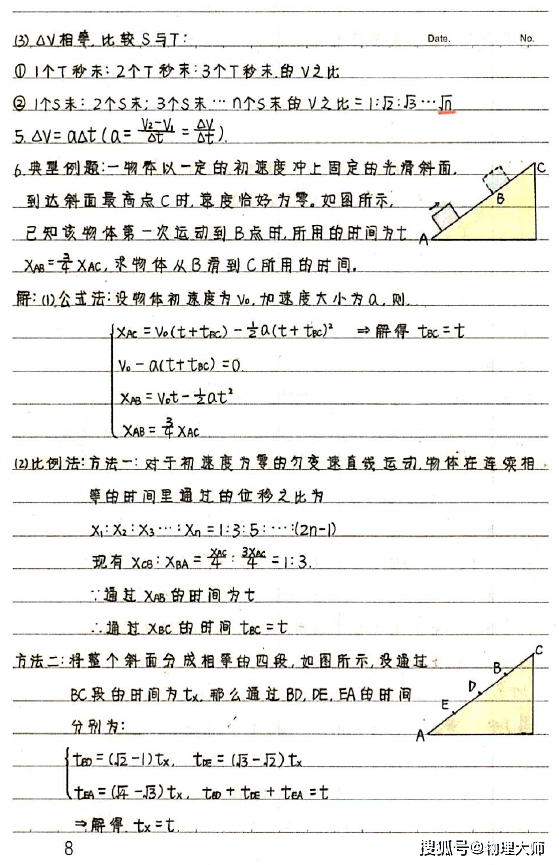 (3) ΔV相等,比较S与T: Date. No.
① 1个T秒末:2个T秒末:3个T秒末的V之比
② 1个S末:2个S末:3个S末…n个S末的V之比=1:√2:√3…√n
5. ΔV=aΔt (a=(V₂-V₁)/Δt=ΔV/Δt).
6. 典型例题:一物体以一定的初速度冲上固定的光滑斜面,
到达斜面最高点C时,速度恰好为零。如图所示,
已知该物体第一次运动到B点时,所用的时间为t
X_AB=3/4 X_AC,求物体从B滑到C所用的时间。
A B C
解:(1)公式法:设物体初速度为V₀,加速度大小为a,则
X_AC=V₀(t+t_BC)-½a(t+t_BC)² ⇒解得 t_BC=t
V₀-a(t+t_BC)=0
X_AB=V₀t-½at²
X_AB=3/4 X_AC
(2)比例法:方法一:对于初速度为零的匀变速直线运动,物体在连续相
等的时间里通过的位移之比为
X₁:X₂:X₃…:Xₙ=1:3:5:…:(2n-1)
现有 X_CB:X_BA=X_AC/4:3X_AC/4=1:3.
∵通过X_AB的时间为t
∴通过X_BC的时间t_BC=t
方法二:将整个斜面分成相等的四段,如图所示,设通过
BC段的时间为t_x,那么通过BD,DE,EA的时间
分别为:
A E D B C
t_BD=(√2-1)t_x, t_DE=(√3-√2)t_x
t_EA=(√4-√3)t_x, t_BD+t_DE+t_EA=t
⇒解得 t_x=t
8
搜狐号@物理大师